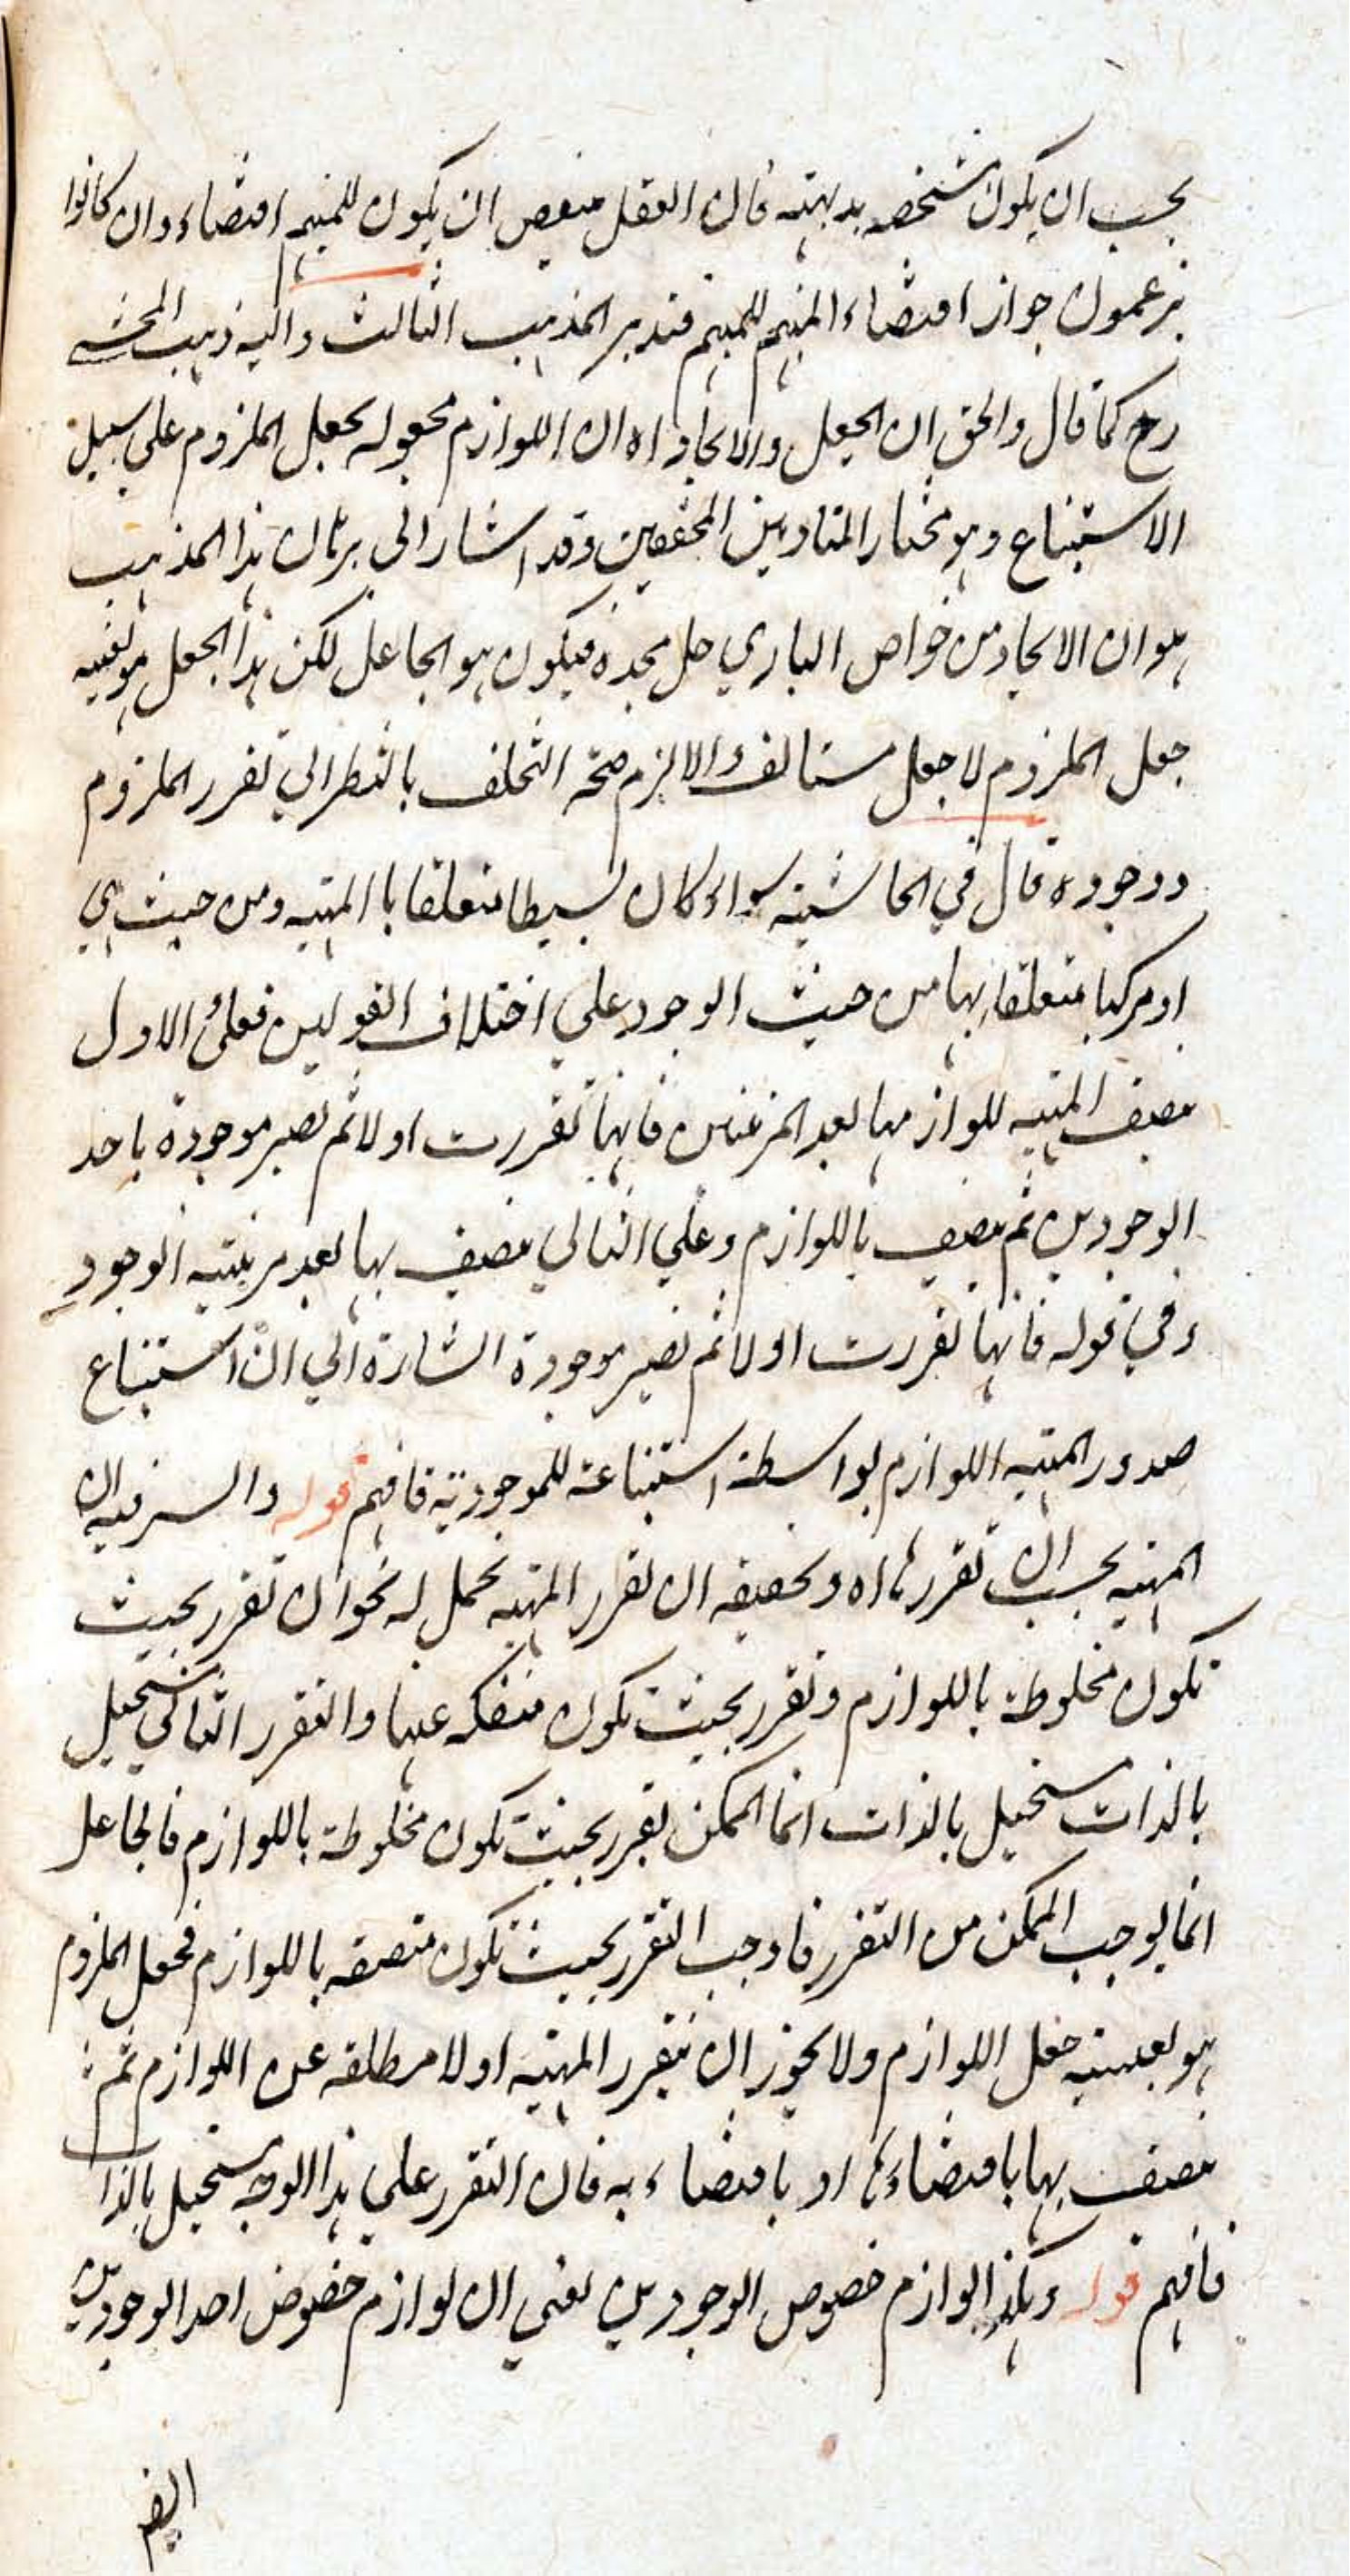 يجب ان يكون شخصه بديهته فان العقل منقبض ان يكون للمبهم اقتضاء وان كانوا
يزعمون جواز اقتضاء المبهم للمبهم فتدبر المذهب الثالث واليه ذهب المحشي
رح كما قال والحق ان الجعل والايجاد اه ان اللوازم مجعوله بجعل الملزوم على سبيل
الاستتباع وهو مختار المتاديين المحققين وقد اشار الى برهان هذا المذهب
هو ان الايجاد من خواص الباري جل مجده فيكون هو الجاعل لكن هذا الجعل هو بعينه
جعل الملزوم لا جعل مستانف والا لزم صحة التخلف بالنظر الي تقرر الملزوم
ووجوده قال في الحاشية سواء كان بسيطا متعلقا با المهية ومن حيث هي
او مركبا متعلقا بها من حيث الوجود علي اختلاف القولين فعلى الاول
تتصف المهية للوازمها بعد المرتبتين فانها تقررت اولا ثم تصير موجودة باحد
الوجودين ثم تتصف باللوازم وعلي الثاني تتصف بها بعد مرتبة الوجود
وفي قوله فانها تقررت اولا ثم تصير موجودة اشارة الي ان استتباع
صدور المهية اللوازم بواسطة استتباعه للموجودية فافهم قوله والسر فيه ان
المهية بحسب ان تقررها اه وتحقيقه ان تقرر المهية يحتمل له نحوان تقرر بحيث
تكون مخلوطة باللوازم وتقرر بحيث تكون منفكه عنها والتقرر الثاني مستحيل
بالذات مستحيل بالذات انما الممكن تقرر بحيث تكون مخلوطة باللوازم فالجاعل
انما يوجب الممكن من التقرر فاوجب التقرر بحيث تكون متصفه باللوازم فجعل الملزوم
هو بعينه جعل اللوازم ولا يجوز ان يتقرر المهية اولا مطلقه عن اللوازم ثم
تتصف بها باقتضاءها او باقتضاء به فان التقرر علي هذا الوجه مستحيل بالذات
فافهم قوله وهكذا لوازم خصوص الوجودين يعني ان لوازم خصوص احد الوجودين
ايضم